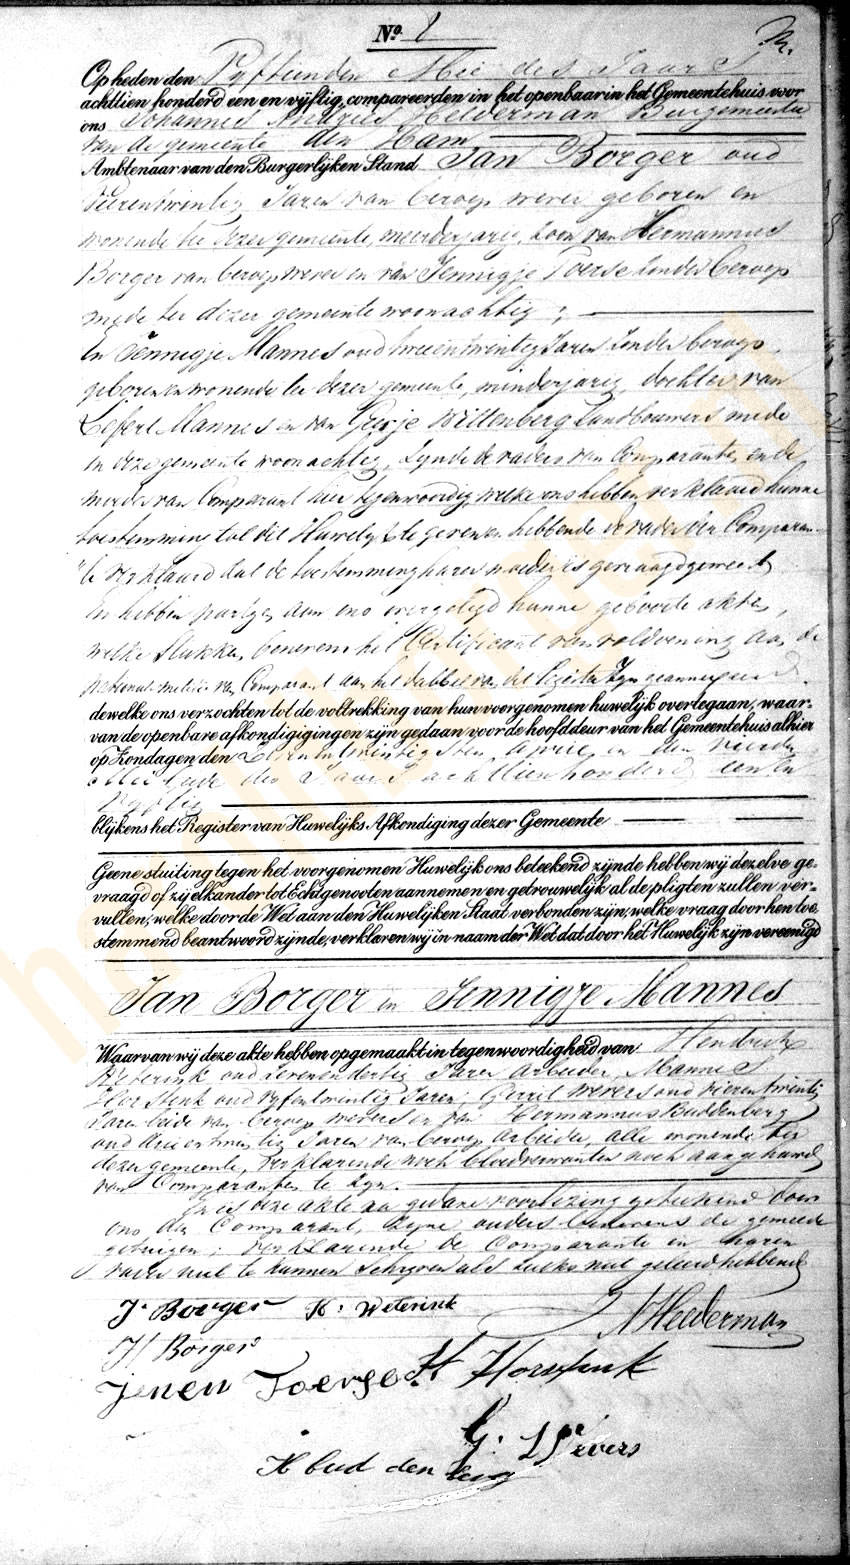 No. 8
Op heden den Vyftienden Mei des Jaars
achttien honderd een en vijftig, compareerden in het openbaar in het Gemeentehuis voor
ons Johannes Andries Helderman Burgemeester
van de gemeente den Ham
Ambtenaar van den Burgerlijken Stand Jan Borger oud
Vierentwintig Jaren van beroep wever geboren en
wonende te dezer gemeente, meerderjarig, zoon van Hermannus
Borger van beroep wever en van Jennigje Toerse zonder beroep
mede ter dezer gemeente woonachtig;
En Jennigje Mannes oud tweeentwintig Jaren zonder beroep,
geboren en wonende te dezer gemeente, minderjarig, dochter van
Lefert Mannes en van Geesje Wittenberg Landbouwers mede
in deze gemeente woonachtig, zynde de vaders van Comparanten en de
moeder van Comparant hier tegenwoordig, welke ons hebben verklaard hunne
toestemming tot dit Huwelyk te geven en hebbende de vader der Comparan-
te verklaard dat de toestemming harer moeder is gevraagd geweest
En hebben partyen aan ons overgelegd hunne geboorte akten,
welke stukken benevens het Certificaat van voldoening aan de
nationale militie van Comparant aan het dubbel van dit Register zyn geannexeerd.
dewelke ons verzochten tot de voltrekking van hun voorgenomen huwelijk overtegaan, waar-
van de openbare afkondigigingen zijn gedaan voor de hoofddeur van het Gemeentehuis alhier
op Zondagen den Zevenentwintigsten April en den vierden
Mei beide des Jaars achttienhonderd een en
vyftig
blijkens het Register van Huwelijks Afkondiging dezer Gemeente
Geene stuiting tegen het voorgenomen Huwelijk ons beteekend zijnde hebben wij dezelve ge-
vraagd of zij elkander tot Echtgenooten aannemen en getrouwelijk al de pligten zullen ver-
vullen, welke door de Wet aan den Huwelijken Staat verbonden zijn, welke vraag door hen toe
stemmend beantwoord zijnde, verklaren wij in naam der Wet dat door het Huwelijk zijn vereenigd
Jan Borger en Jennigje Mannes
Waarvan wij deze akte hebben opgemaakt in tegenwoordigheid van Hendrik
Weterink oud Zevenendertig Jaren Arbeider, Mannes
Horstink oud vyfentwintig Jaren, Gerrit Wevers oud vierentwintig
Jaren beide van beroep wevers en Jan Hermannus Buddenberg
oud drieentwintig Jaren van beroep Arbeider, alle wonende te
dezer gemeente, verklarende noch bloedverwanten noch aangehuwd
van Comparanten te zyn.
En is deze akte na gedane voorlezing geteekend door
ons den Comparant, zyne ouders benevens de gemelde
getuigen; verklarende de Comparante en haren
vader niet te kunnen schryven als zulks niet geleerd hebbende
J. Borger H. Weterink
AHelderman
H Borger
Jenen Toerse M Horstink
G. Wevers
H bud den berg